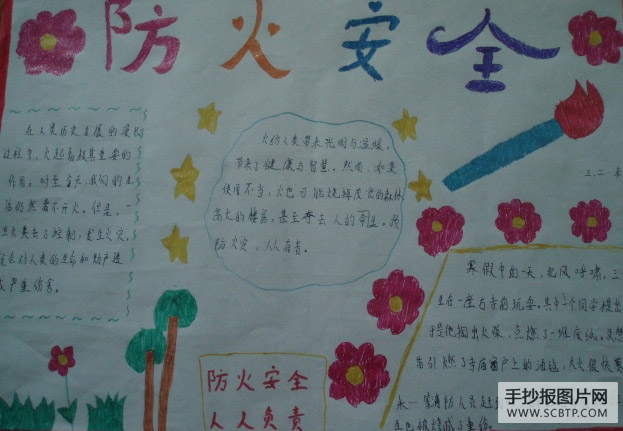 防火安全
在人类历史发展的漫长
过程中，火起着极其重要的
作用。时至今天，我们的生
活仍然离不开火。但是，一
旦火失去了控制，发生火灾，
就会对人类的生命和财产造
成严重伤害。
火给人类带来光明与温暖，
带来了健康与智慧。然而，如果
使用不当，火也可能烧掉茂密的森林
高大的楼房，甚至夺去人的生。预
防火灾，人人有责。
三.二
寒假中的一天，北风呼啸。三
在一座古寺前玩耍，其中一个同学提出
于是他掏出火柴，点燃了一堆废纸，
引燃了寺庙窗户上的油毡，火很快蔓
防火安全
人人负责
手抄报图片网
WWW.SCBTP.COM